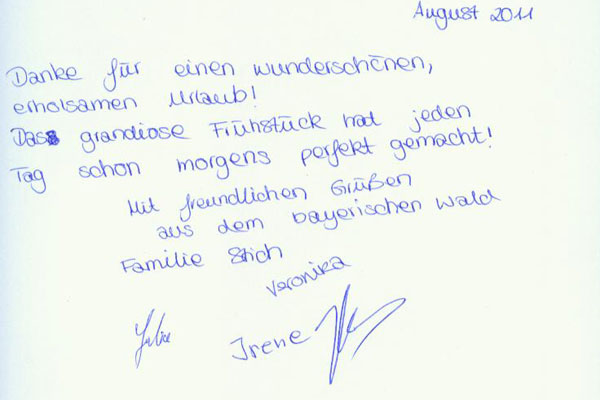 August 2011
Danke für einen wunderschönen,
erholsamen Urlaub!
Das grandiose Frühstück hat jeden
Tag schon morgens perfekt gemacht!
Mit freundlichen Grüßen
aus dem bayerischen Wald
Familie Stich
Veronika
Irene